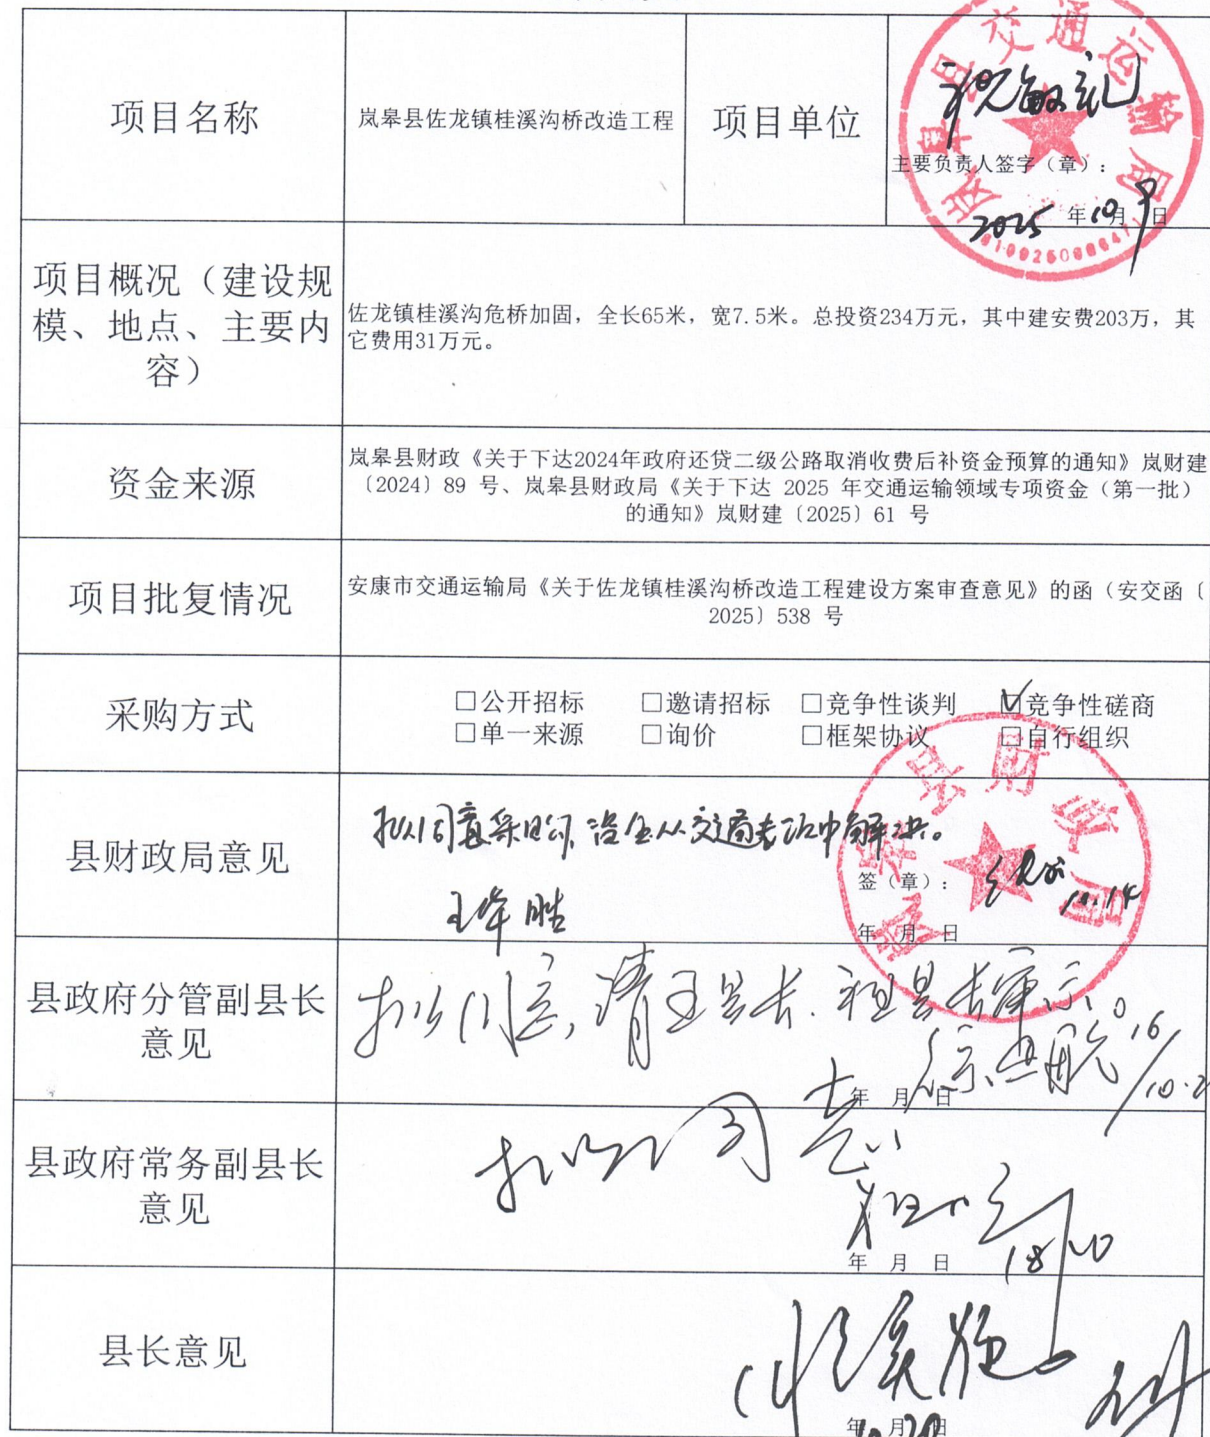 项目名称
岚皋县佐龙镇桂溪沟桥改造工程
项目单位
岚皋县交通运输局
主要负责人签字（章）：
2025 年10月9日
项目概况（建设规
模、地点、主要内
容）
佐龙镇桂溪沟危桥加固，全长65米，宽7.5米。总投资234万元，其中建安费203万，其
它费用31万元。
资金来源
岚皋县财政《关于下达2024年政府还贷二级公路取消收费后补资金预算的通知》岚财建
〔2024〕89 号、岚皋县财政局《关于下达 2025 年交通运输领域专项资金（第一批）
的通知》岚财建〔2025〕61 号
项目批复情况
安康市交通运输局《关于佐龙镇桂溪沟桥改造工程建设方案审查意见》的函（安交函〔
2025〕538 号
采购方式
□公开招标 □邀请招标 □竞争性谈判 ☑竞争性磋商
□单一来源 □询价 □框架协议 □自行组织
县财政局意见
拟同意采购，资金从交通专项中解决。
岚皋县财政局
签（章）：
10.14
年 月 日
县政府分管副县长
意见
拟同意，请王县长、祖县长审示。
年 月 日
县政府常务副县长
意见
拟同意
年 月 日
县长意见
同意实施
年 月 日